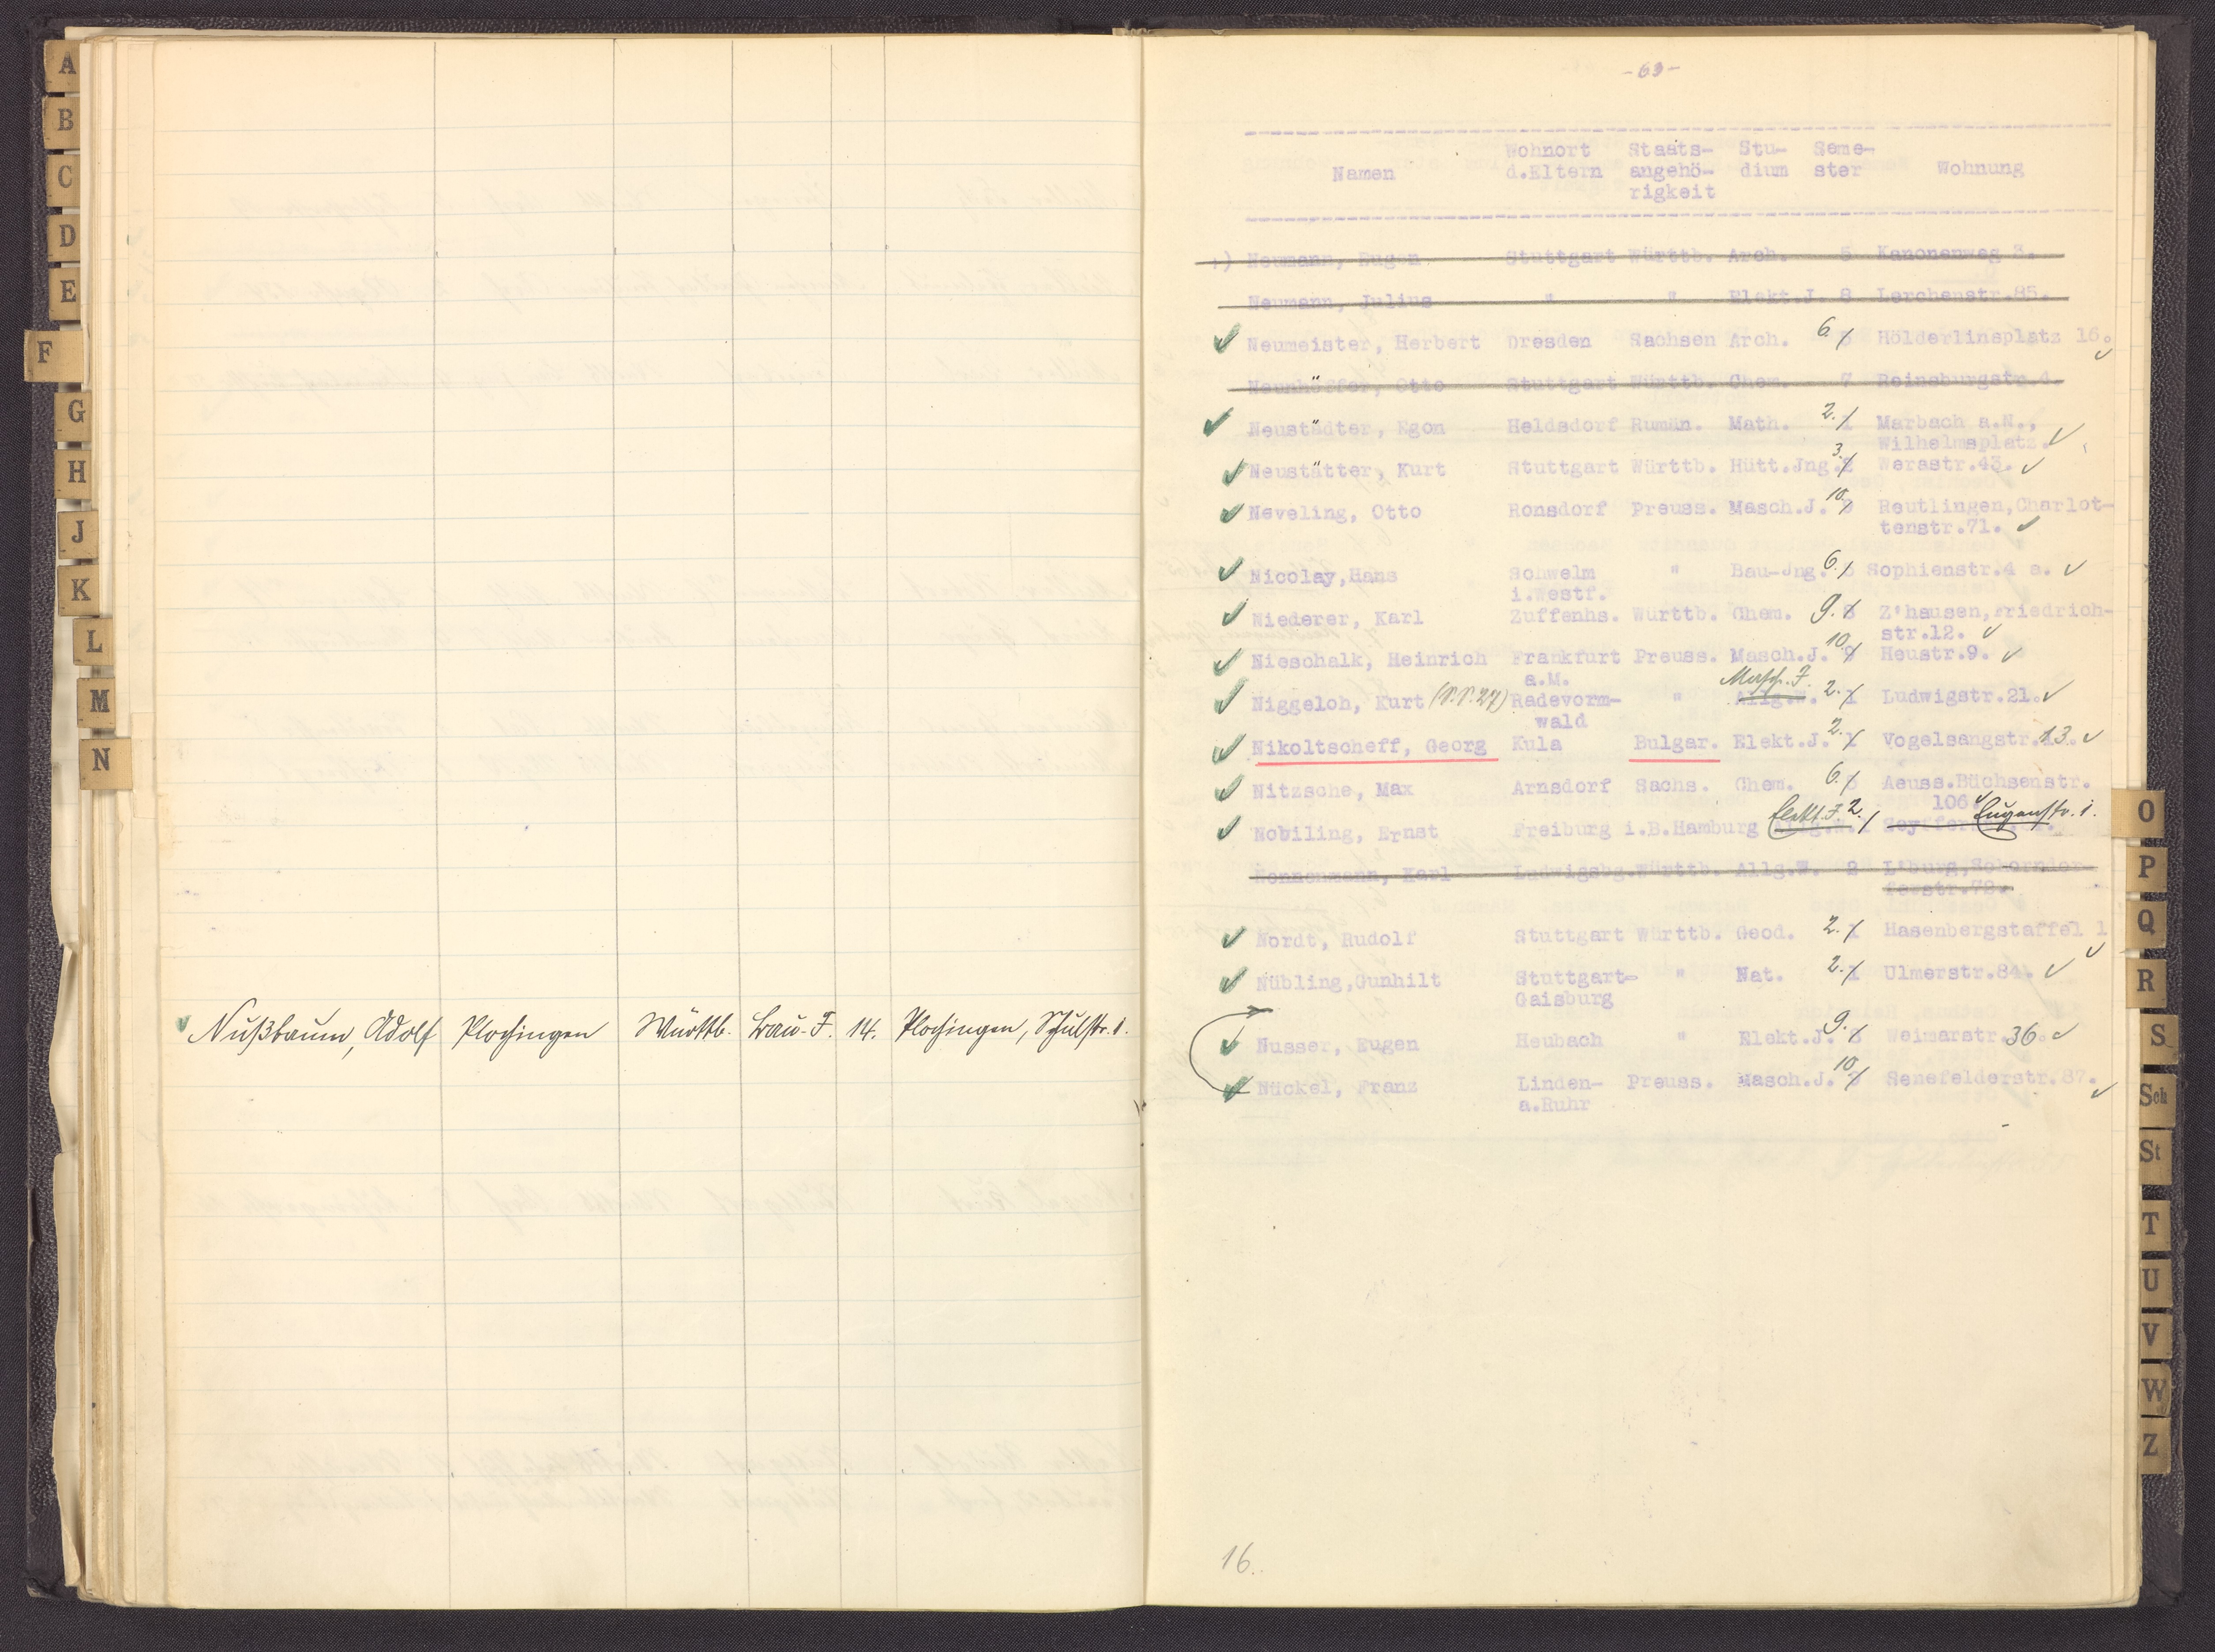 A
B
C
D
E
F
G
H
J
K
L
M
N
Nußbaum, Adolf Plochingen Württb. Bau-J. 14. Plochingen, Schulstr. 1.
-69-
Namen Wohnort d.Eltern Staats-angehö-rigkeit Stu-dium Seme-ster Wohnung
Neumann, Eugen Stuttgart Württb. Arch. 5 Kanonenweg 3.
Neumann, Julius " " Elekt.J. 8 Lerchenstr.85.
Neumeister, Herbert Dresden Sachsen Arch. 6. 5 Hölderlinsplatz 16.
Neunhöffer, Otto Stuttgart Württb. Chem. 7 Reinsburgstr.4.
Neustädter, Egon Heldsdorf Rumän. Math. 2. 1 Marbach a.N.,
Wilhelmsplatz.
Neustätter, Kurt Stuttgart Württb. Hütt.Jng. 3. 2 Werastr.43.
Neveling, Otto Ronsdorf Preuss. Masch.J. 10. 9 Reutlingen,Charlot-
tenstr.71.
Nicolay,Hans Schwelm " Bau-Jng. 6. 5 Sophienstr.4 a.
i.Westf.
Niederer, Karl Zuffenhs. Württb. Chem. 9. 8 Z'hausen,Friedrich-
str.12.
Nieschalk, Heinrich Frankfurt Preuss. Masch.J. 10. 9 Heustr.9.
a.M. Masch.J.
Niggeloh, Kurt (S.S.27) Radevorm- " Allg.W. 2. 1 Ludwigstr.21.
wald
Nikoltscheff, Georg Kula Bulgar. Elekt.J. 2. 1 Vogelsangstr.13.
Nitzsche, Max Arnsdorf Sachs. Chem. 6. 5 Aeuss.Büchsenstr.
106. Elekt.J. 2. Eugenstr. 1.
Nobiling, Ernst Freiburg i.B.Hamburg Allg.W.
Nonnenmann, Karl Ludwigsbg.Württb. Allg.W. 2 L'burg,Schorndor-
ferstr.72.
Nordt, Rudolf Stuttgart Württb. Geod. 2. 1 Hasenbergstaffel 1
Nübling,Gunhilt Stuttgart- " Nat. 2. 1 Ulmerstr.84.
Gaisburg
Nusser, Eugen Heubach " Elekt.J. 9. 8 Weimarstr.36.
Nückel, Franz Linden- Preuss. Masch.J. 10. 9 Senefelderstr.87.
a.Ruhr
16.
O
P
Q
R
S
Sch
St
T
U
V
W
Z